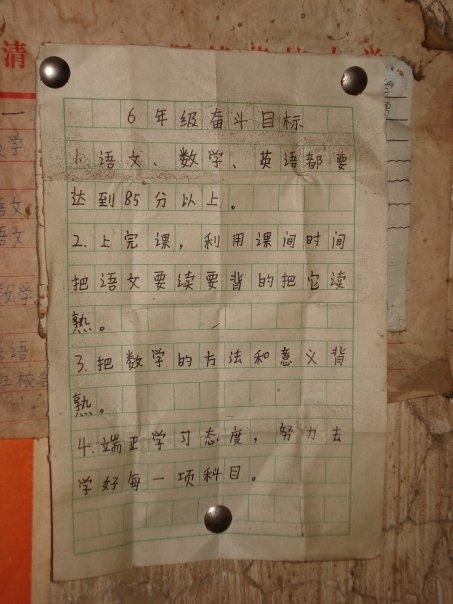 清
6年级奋斗目标
1.语文、数学、英语都要
达到85分以上。
2.上完课，利用课间时间
把语文要读要背的把它读
熟。
3.把数学的方法和意义背
熟。
4.端正学习态度，努力去
学好每一项科目。
语文
语文
数学